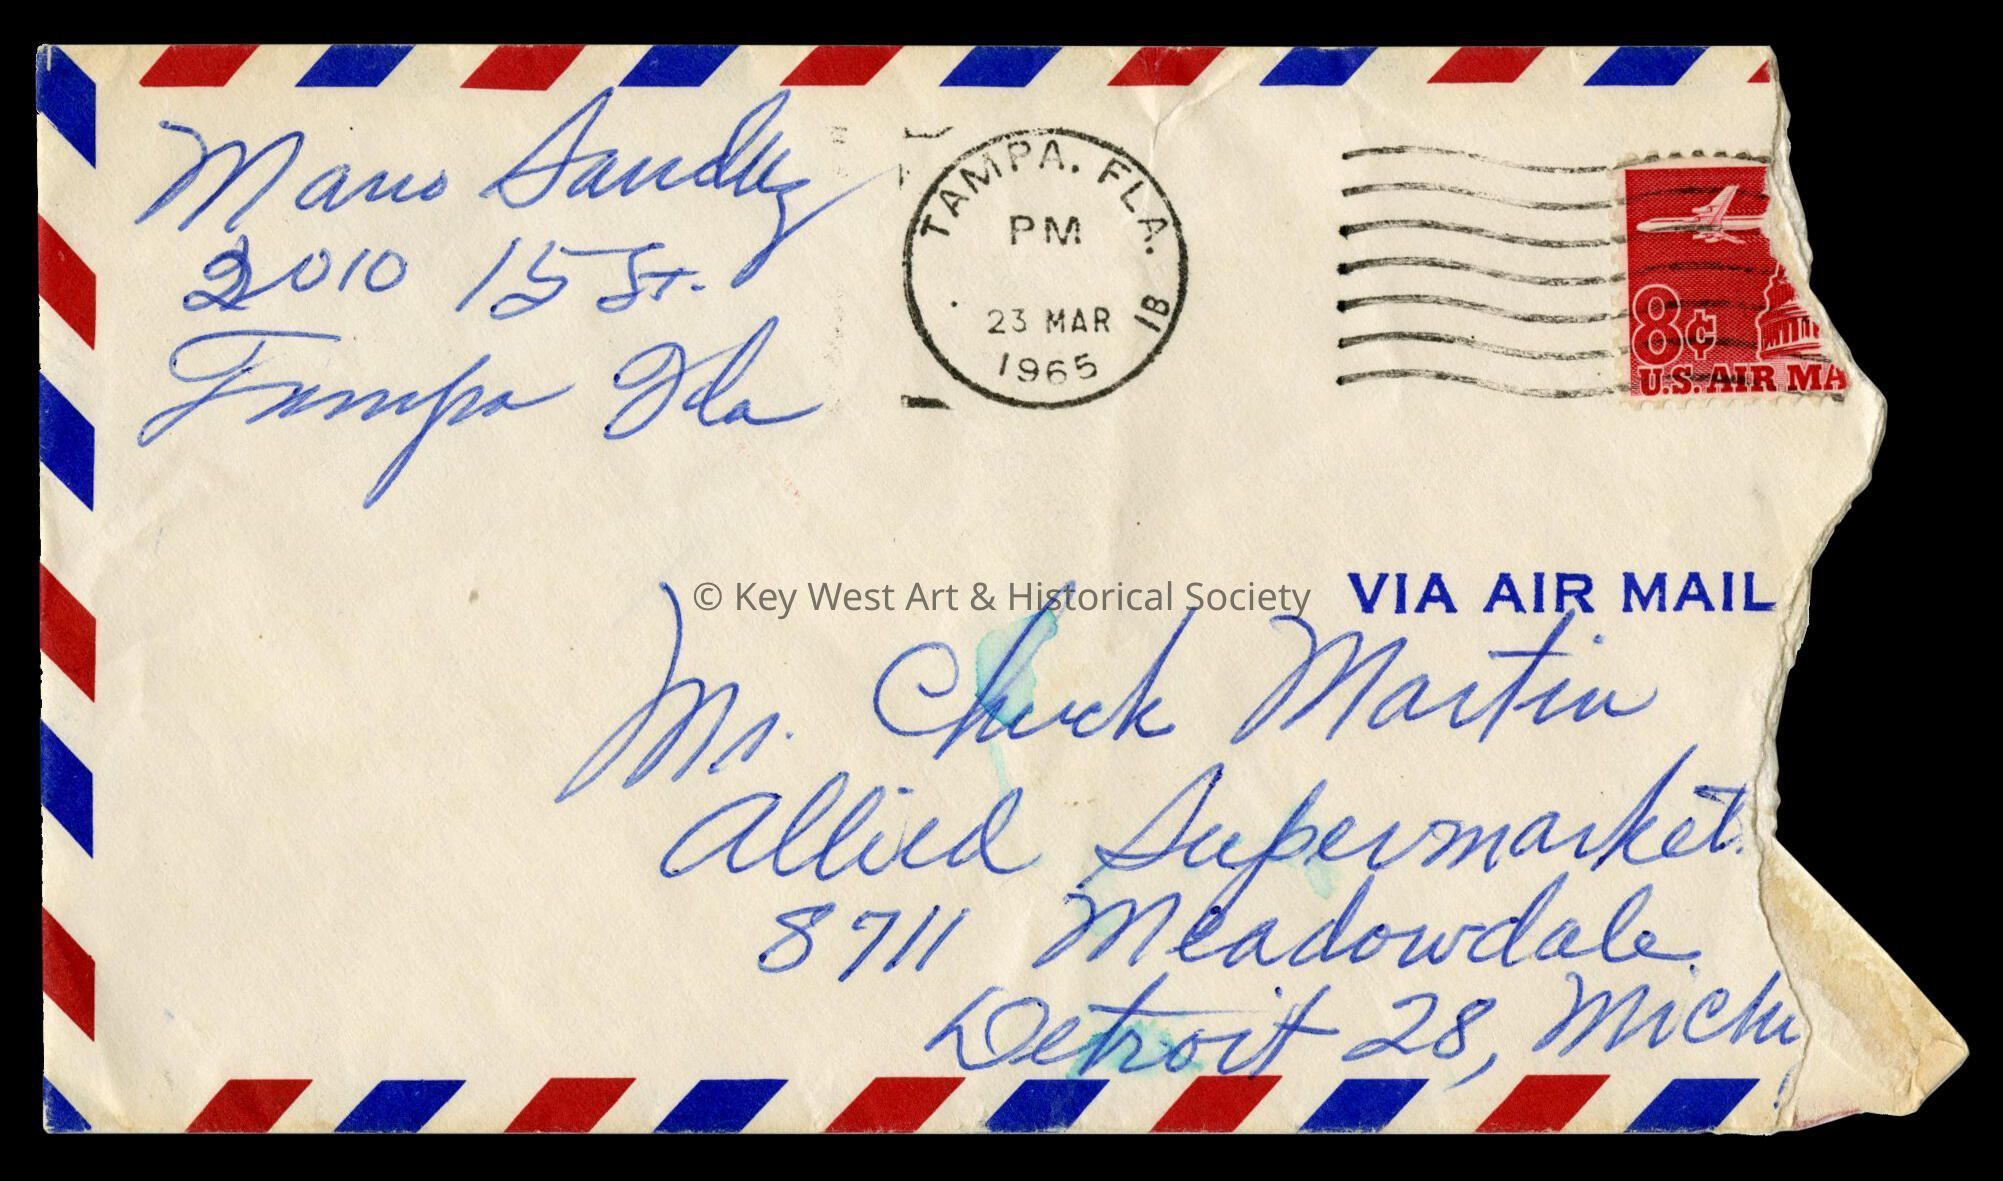 Mario Sanchez
2010 15 St.
Tampa Fla
TAMPA. FLA.
PM
23 MAR
1965
1B
8¢
U.S. AIR MA
© Key West Art & Historical Society
VIA AIR MAIL
Mr. Chuck Martin
Allied Supermarket
8711 Meadowdale
Detroit 28, Michi